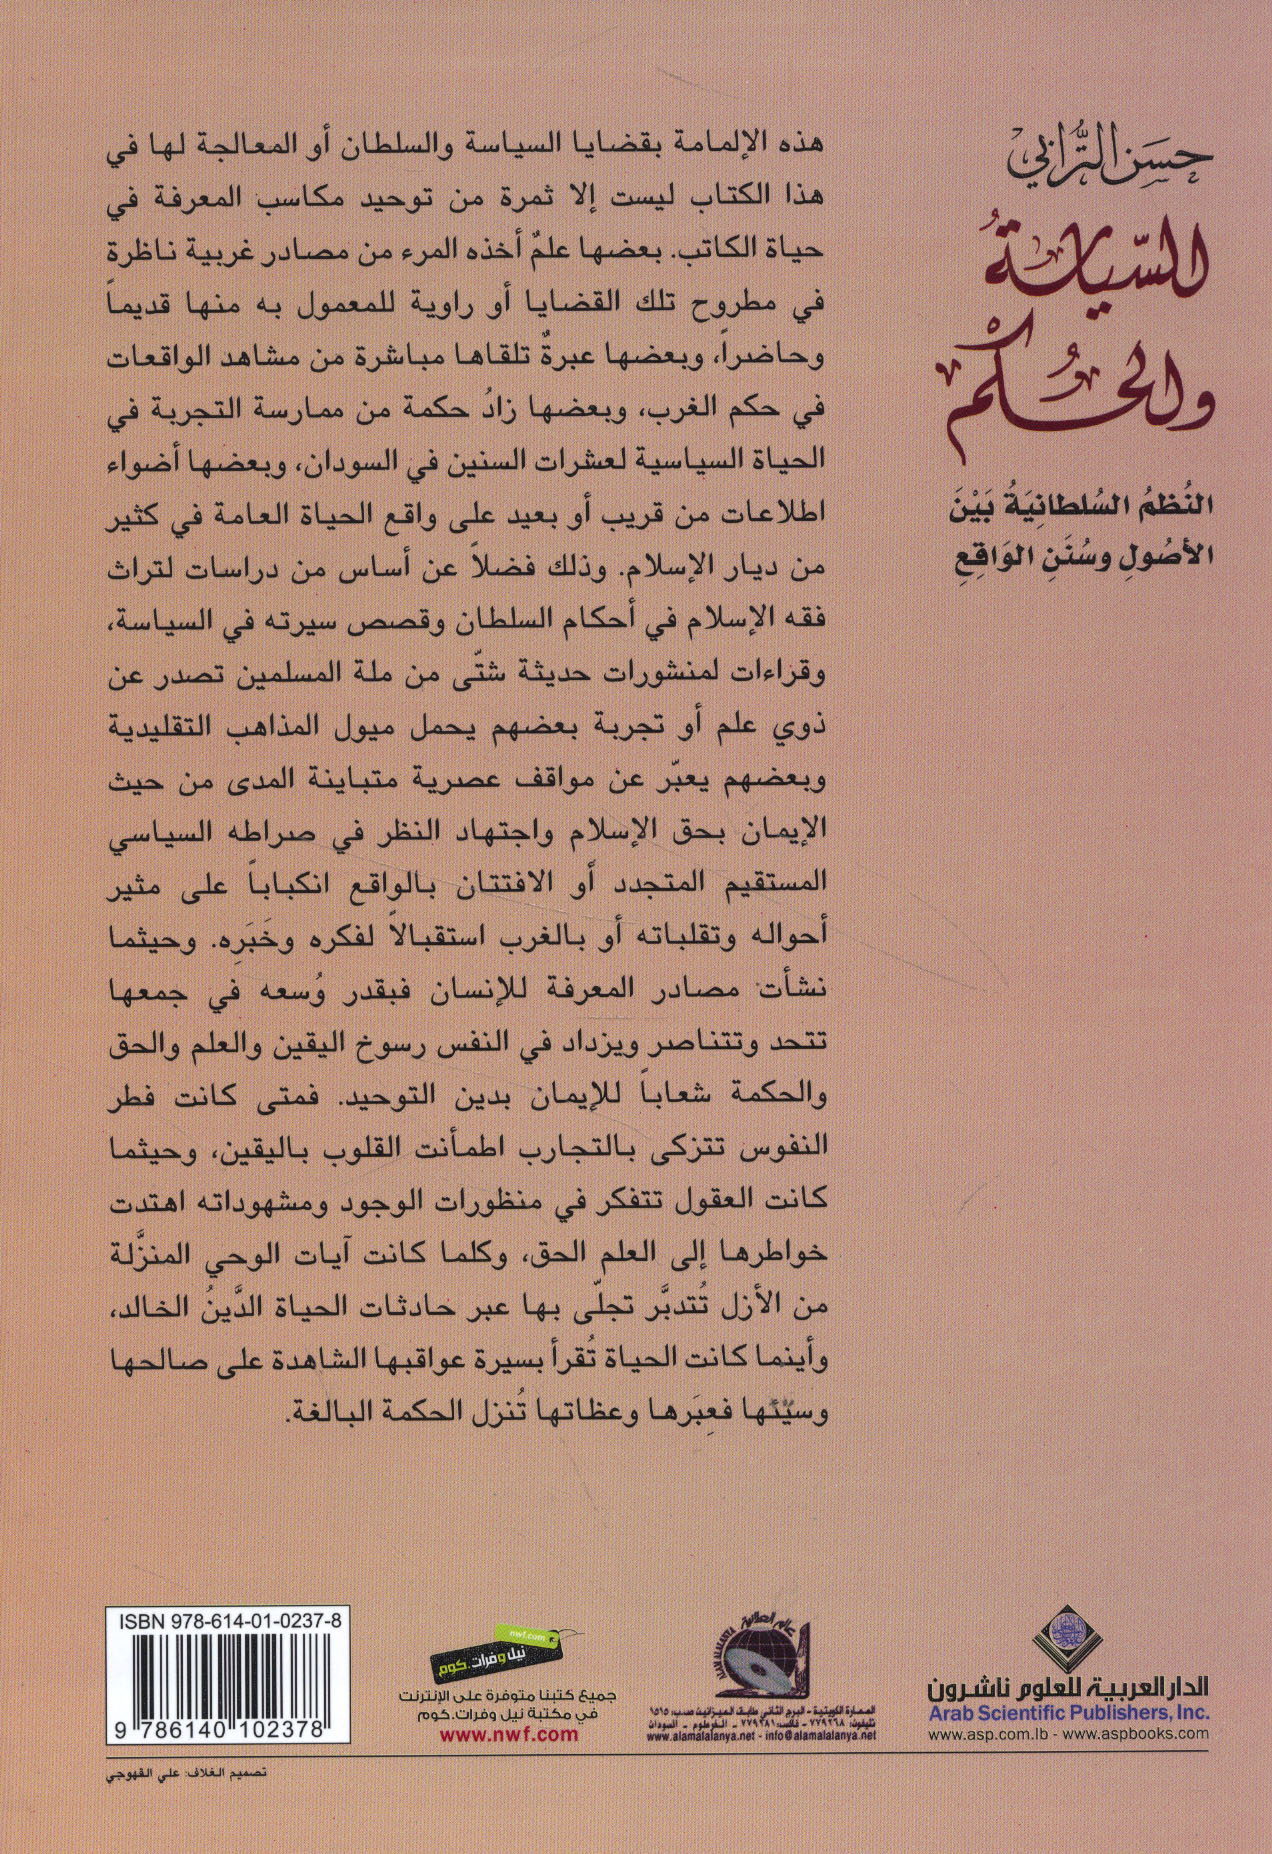 حسَن التُّرابي
السّياسَةُ
والحُكْم
النُظمُ السُلطانِيَةُ بَيْنَ
الأصُولِ وسُنَنِ الوَاقِعِ
هذه الإلمامة بقضايا السياسة والسلطان أو المعالجة لها في
هذا الكتاب ليست إلا ثمرة من توحيد مكاسب المعرفة في
حياة الكاتب. بعضها علمٌ أخذه المرء من مصادر غربية ناظرة
في مطروح تلك القضايا أو راوية للمعمول به منها قديماً
وحاضراً، وبعضها عبرةٌ تلقاها مباشرة من مشاهد الواقعات
في حكم الغرب، وبعضها زادُ حكمة من ممارسة التجربة في
الحياة السياسية لعشرات السنين في السودان، وبعضها أضواء
اطلاعات من قريب أو بعيد على واقع الحياة العامة في كثير
من ديار الإسلام. وذلك فضلاً عن أساس من دراسات لتراث
فقه الإسلام في أحكام السلطان وقصص سيرته في السياسة،
وقراءات لمنشورات حديثة شتّى من ملة المسلمين تصدر عن
ذوي علم أو تجربة بعضهم يحمل ميول المذاهب التقليدية
وبعضهم يعبّر عن مواقف عصرية متباينة المدى من حيث
الإيمان بحق الإسلام واجتهاد النظر في صراطه السياسي
المستقيم المتجدد أو الافتتان بالواقع انكباباً على مثير
أحواله وتقلباته أو بالغرب استقبالاً لفكره وخَبَرِه. وحيثما
نشأت مصادر المعرفة للإنسان فبقدر وُسعه في جمعها
تتحد وتتناصر ويزداد في النفس رسوخ اليقين والعلم والحق
والحكمة شعاباً للإيمان بدين التوحيد. فمتى كانت فطر
النفوس تتزكى بالتجارب اطمأنت القلوب باليقين، وحيثما
كانت العقول تتفكر في منظورات الوجود ومشهوداته اهتدت
خواطرها إلى العلم الحق، وكلما كانت آيات الوحي المنزَّلة
من الأزل تُتدبَّر تجلّى بها عبر حادثات الحياة الدَّينُ الخالد،
وأينما كانت الحياة تُقرأ بسيرة عواقبها الشاهدة على صالحها
وسيّئها فعِبَرها وعظاتها تُنزل الحكمة البالغة.
الدار العربية للعلوم ناشرون
Arab Scientific Publishers, Inc.
www.asp.com.lb - www.aspbooks.com
عالم العلانية
ALAM ALALANYA
العمارة الكويتية - البرج الثاني طابق الميزانين ص.ب: ١٥١٥
تليفون: ٧٧٩٢٦٨ - فاكس: ٧٧٩٢٨١ - الخرطوم - السودان
www.alamalalanya.net - info@alamalalanya.net
nwf.com
نيل وفرات.كوم
جميع كتبنا متوفرة على الإنترنت
في مكتبة نيل وفرات.كوم
www.nwf.com
ISBN 978-614-01-0237-8
9 786140 102378
تصميم الغلاف: علي القهوجي